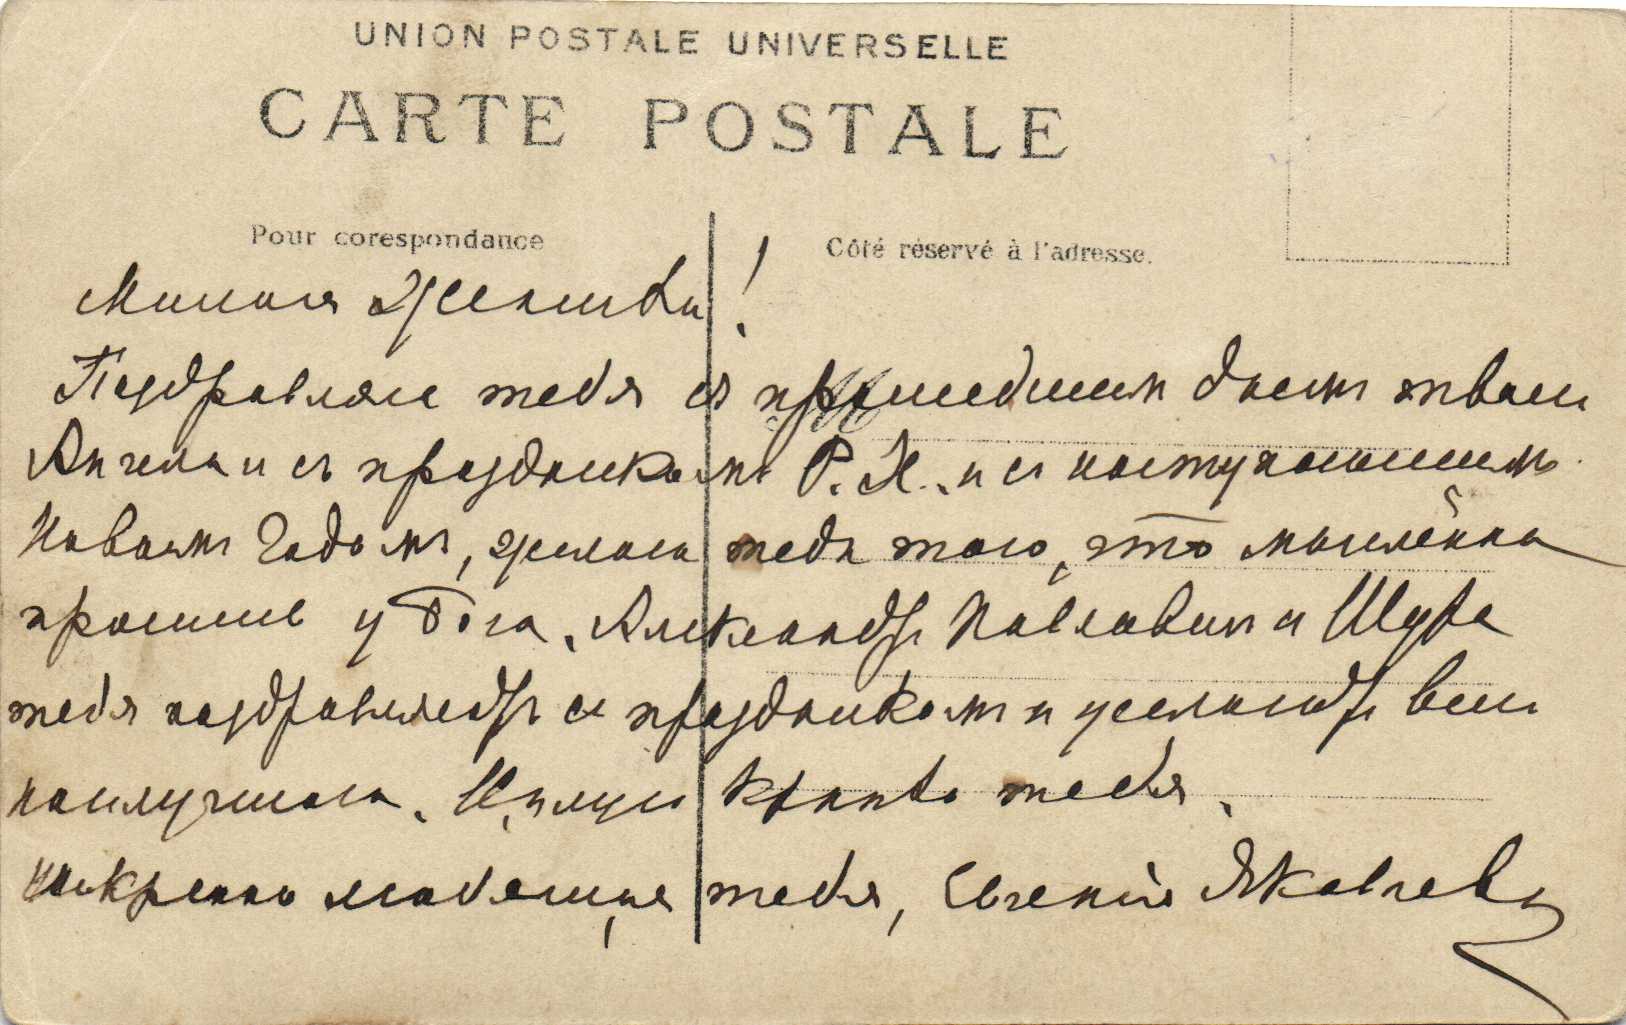 UNION POSTALE UNIVERSELLE
CARTE POSTALE
Pour corespondance
Côté réservé à l'adresse.
Милая !
Поздравляю тебя съ прошедшим днемъ твоего
Ангела и съ праздникомъ Р. Х. и съ наступающимъ
Новымъ Годомъ, желаю тебѣ того, что мысленно
просишь у Бога. Александръ Павловичъ и Шура
тебя поздравляютъ съ праздникомъ и желаютъ всего
наилучшаго. Цѣлую крѣпко тебя.
Искренно любящая тебя, Евгенія Яковлева